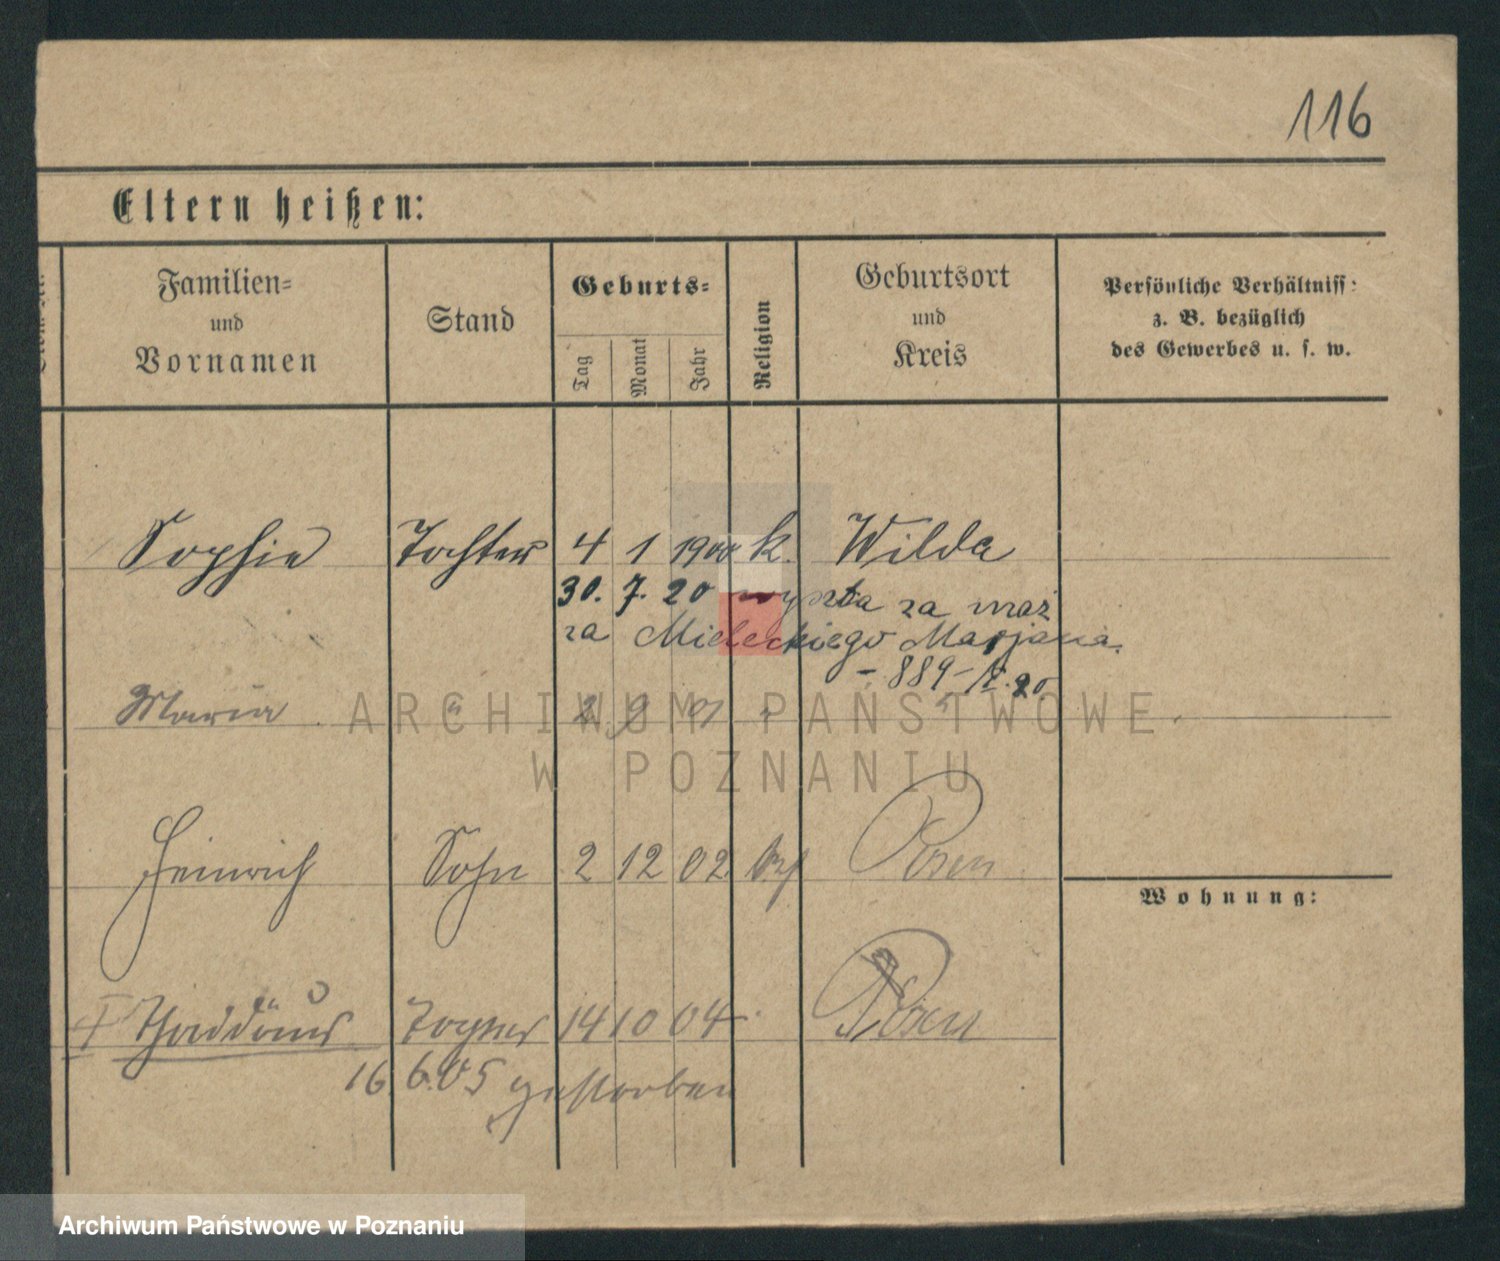 116
Eltern heißen:
Familien=
und
Vornamen
Stand
Geburts=
Tag
Monat
Jahr
Religion
Geburtsort
und
Kreis
Persönliche Verhältniss:
z. B. bezüglich
des Gewerbes u. s. w.
Sophie Tochter 4 1 1900 k. Wilda
30. 7. 20 wyszła za mąż
za Mieleckiego Marjana.
- 889 - 20
Maria " 2 9 01 " "
Heinrich Sohn 2 12 02 Posen
Wohnung:
Thaddäus 14 10 04 Posen
16. 6. 05 gestorben
ARCHIWUM PAŃSTWOWE
W POZNANIU
Archiwum Państwowe w Poznaniu